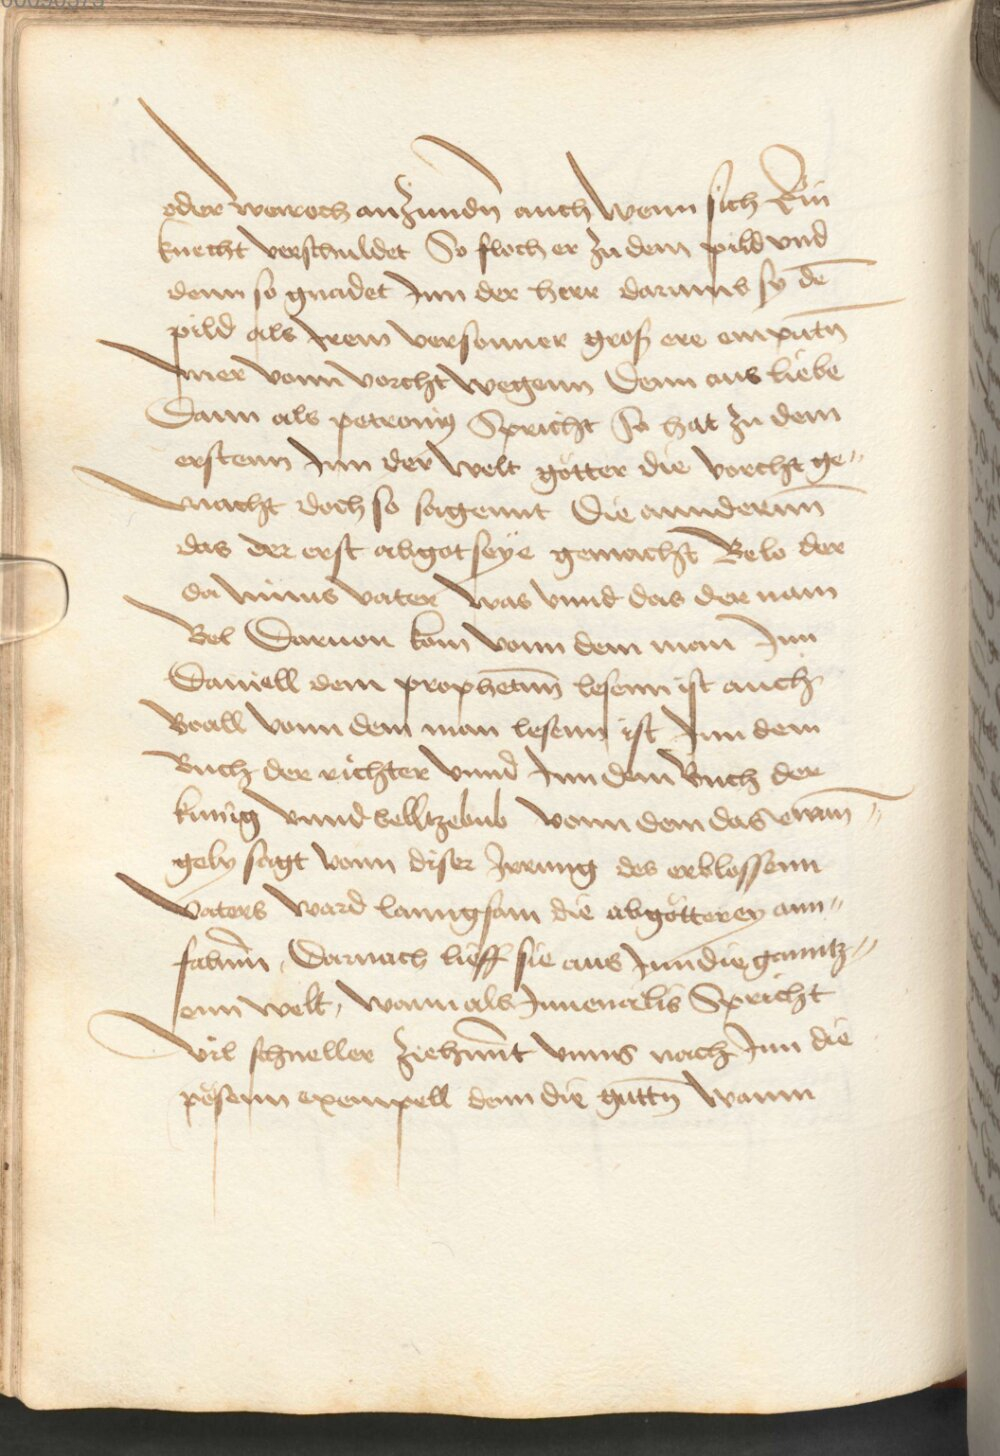 oder weiroch anzundn̄ auch Wenn sich Ein
knecht verschuldet So floch er zu dem pild vnd
denn so gnadet Jnn der herr darumb sy dē
pild als Jrem versonner groß ere empūtn̄
mer vonn vorcht wegenn Denn aus liebe
Dann als petroniꝰ Spricht So hat zu dem
erstenn Jnn der Welt götter die vorcht ge〃
macht doch so sagennt Die anndernn̄
das der erst abgot seÿe gemacht Belo der
da Ninus vater was vnnd das der nam
Bel Daruon kom vonn dem man Jnn
Daniell dem prophetnn̄ lesenn ist auch
Baall vonn dem man lesenn ist Jnn dem
Buch der richter vnnd Jnn dem Buch der
kunig vnnd bellzebub vonn dem das ewan̄〃
gely sagt vonn diser Jrrung des erblossenn
vaters ward lanngsam die abgötterey ann〃
fahnn̄, Darnach lieff sie aus Jnn die ganntz〃
enn welt, wann als Juuenalis Spricht
vil schneller ziehnn̄t vnns nach Jnn die
pösenn exempell denn die gūttn̄ wann